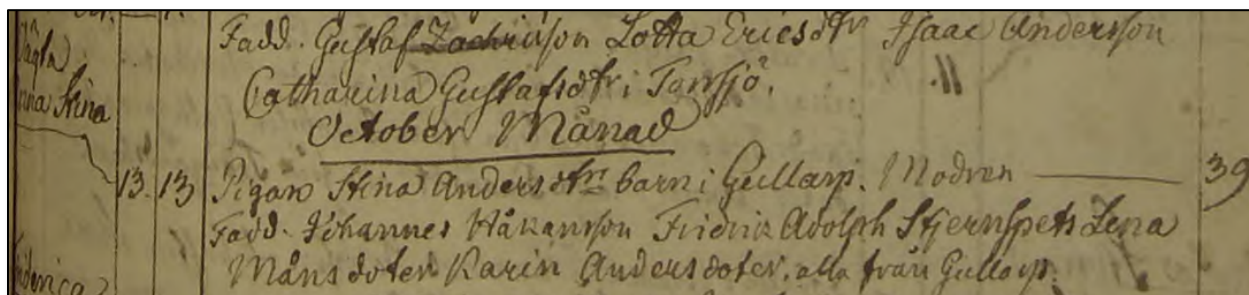 Fadd. Gustaf Zachrisson Lotta Ericsdtr Isaac Andersson
Oägta
Catharina Gustafsdtr i Tomsjö.
Stina
October Månad
13. 13 Pigan Stina Andersdtrs barn i Gullarp. Modren 39
Fadd. Johannes Håkansson Fridrik Adolph Stjernspets Lena
Månsdoter Karin Andersdoter. alla från Gullarp.